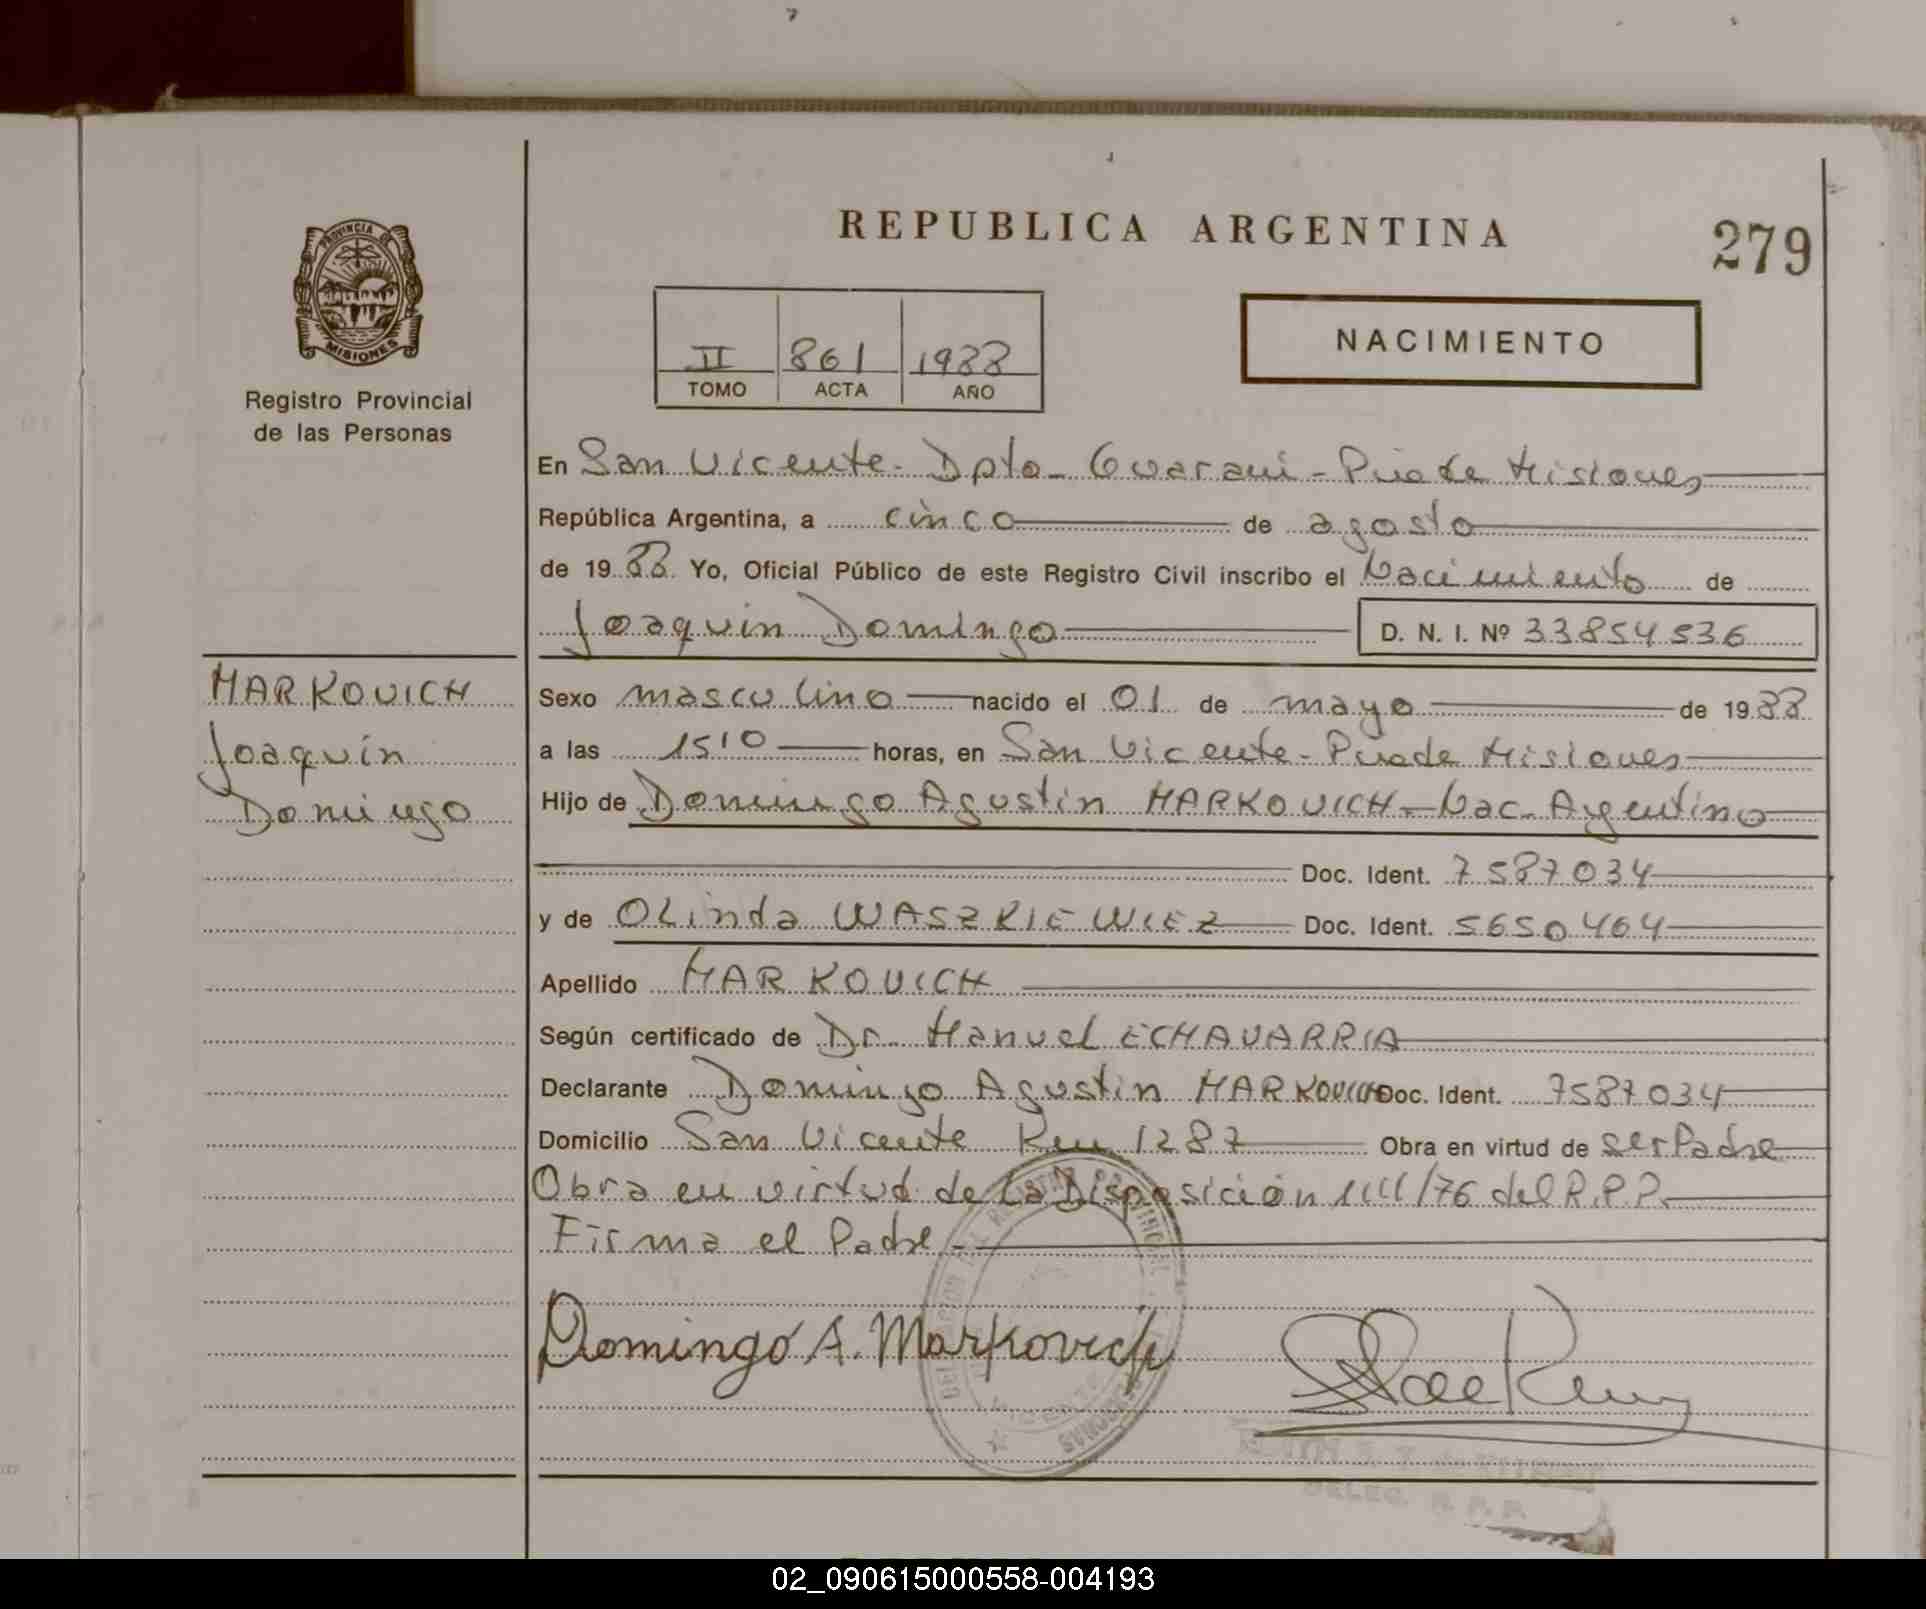 REPUBLICA ARGENTINA
279
PROVINCIA DE
MISIONES
Registro Provincial
de las Personas
II 861 1988
TOMO ACTA AÑO
NACIMIENTO
En San Vicente - Dpto - Guarani - Pcia de Misiones
República Argentina, a cinco de agosto
de 1988 Yo, Oficial Público de este Registro Civil inscribo el Nacimiento de
Joaquin Domingo D. N. I. Nº 33854536
MARKOVICH
Joaquin
Domingo
Sexo masculino nacido el 01 de mayo de 1988
a las 1510 horas, en San Vicente - Pcia de Misiones
Hijo de Domingo Agustin MARKOVICH - Nac. Argentino
Doc. Ident. 7587034
y de OLinda WASZKIEWIEZ Doc. Ident. 5650464
Apellido MARKOVICH
Según certificado de Dr. Manuel ECHAVARRIA
Declarante Domingo Agustin MARKOVICH Doc. Ident. 7587034
Domicilio San Vicente Km 1287 Obra en virtud de ser Padre
Obra en virtud de la Disposición /76 del R.P.P.
Firma el Padre.-
Domingo A. Markovich
DELEG. R. P. P.
02_090615000558-004193